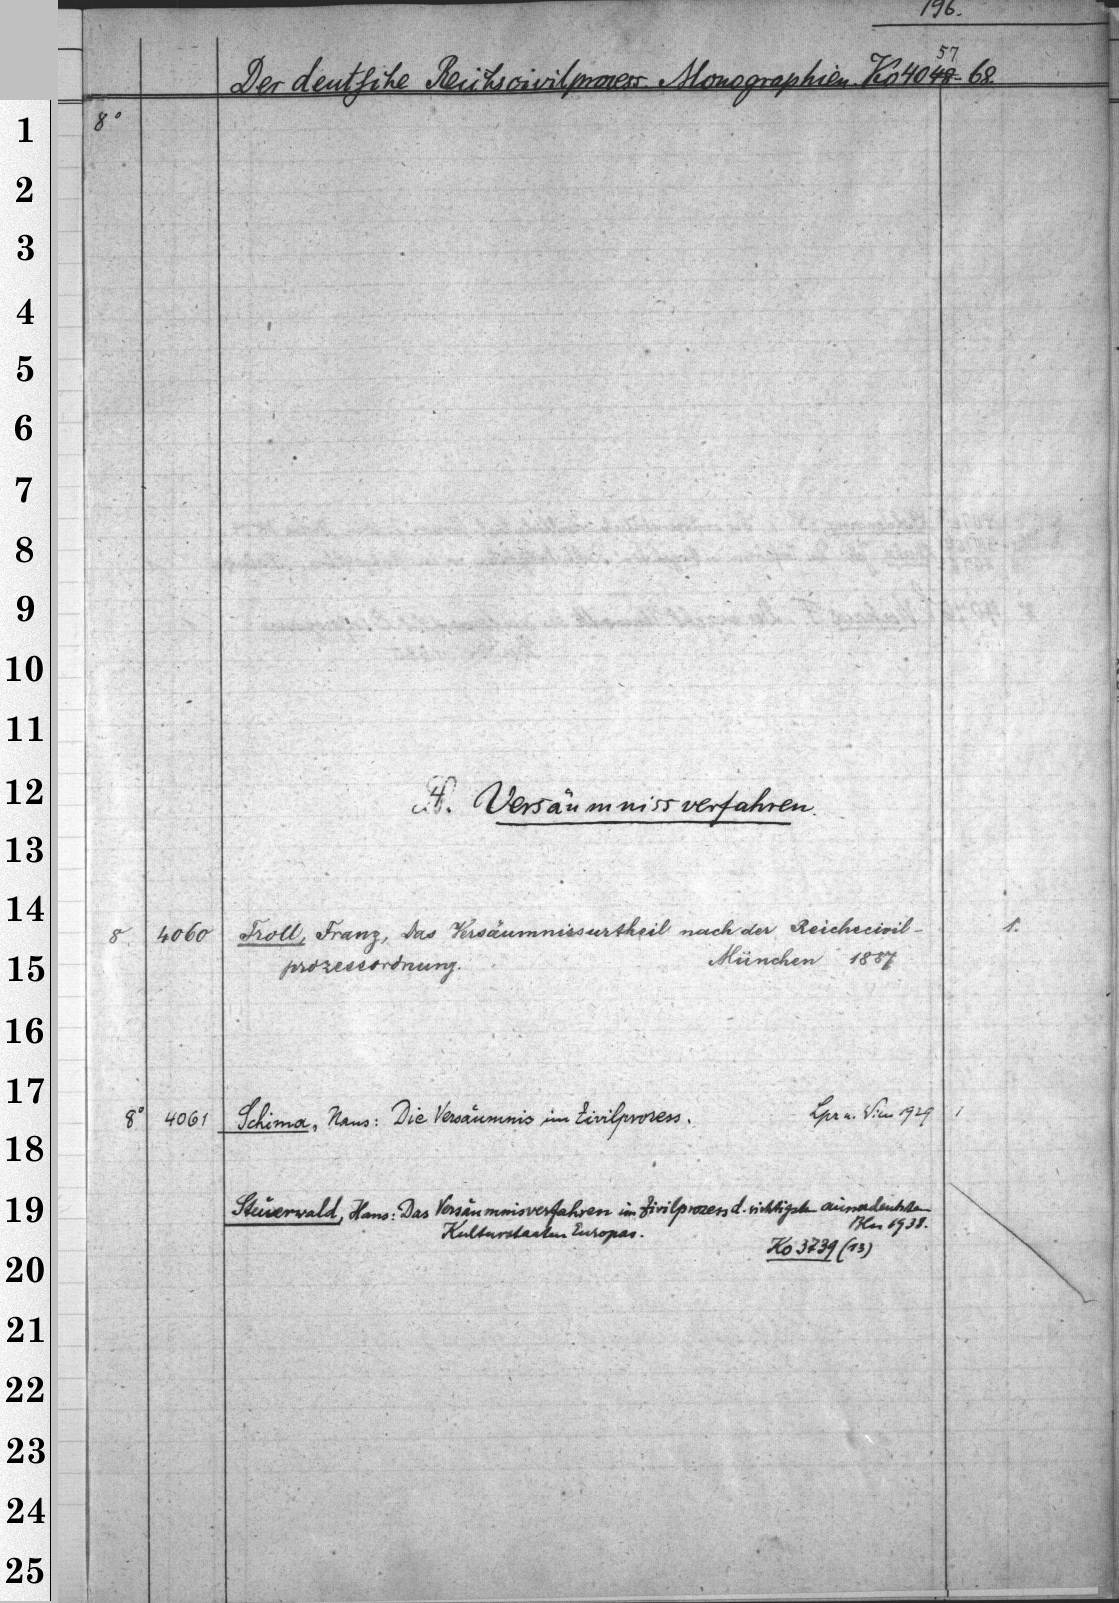 196.
57
Der deutsche Reichscivilprozess. Monographien. Ko 4048-68.
8°
4. Versäumnissverfahren.
8. 4060 Troll, Franz, Das Versäumnissurtheil nach der Reichscivil- 1.
prozessordnung. München 1887
8° 4061 Schima, Hans: Die Versäumnis im Zivilprozess. Lpz u. Wien 1929 1
Steuerwald, Hans: Das Versäumnisverfahren im Zivilprozess d. wichtigsten ausserdeutschen
Kulturstaaten Europas. Bln 1938.
Ko 3739 (13)
1
2
3
4
5
6
7
8
9
10
11
12
13
14
15
16
17
18
19
20
21
22
23
24
25